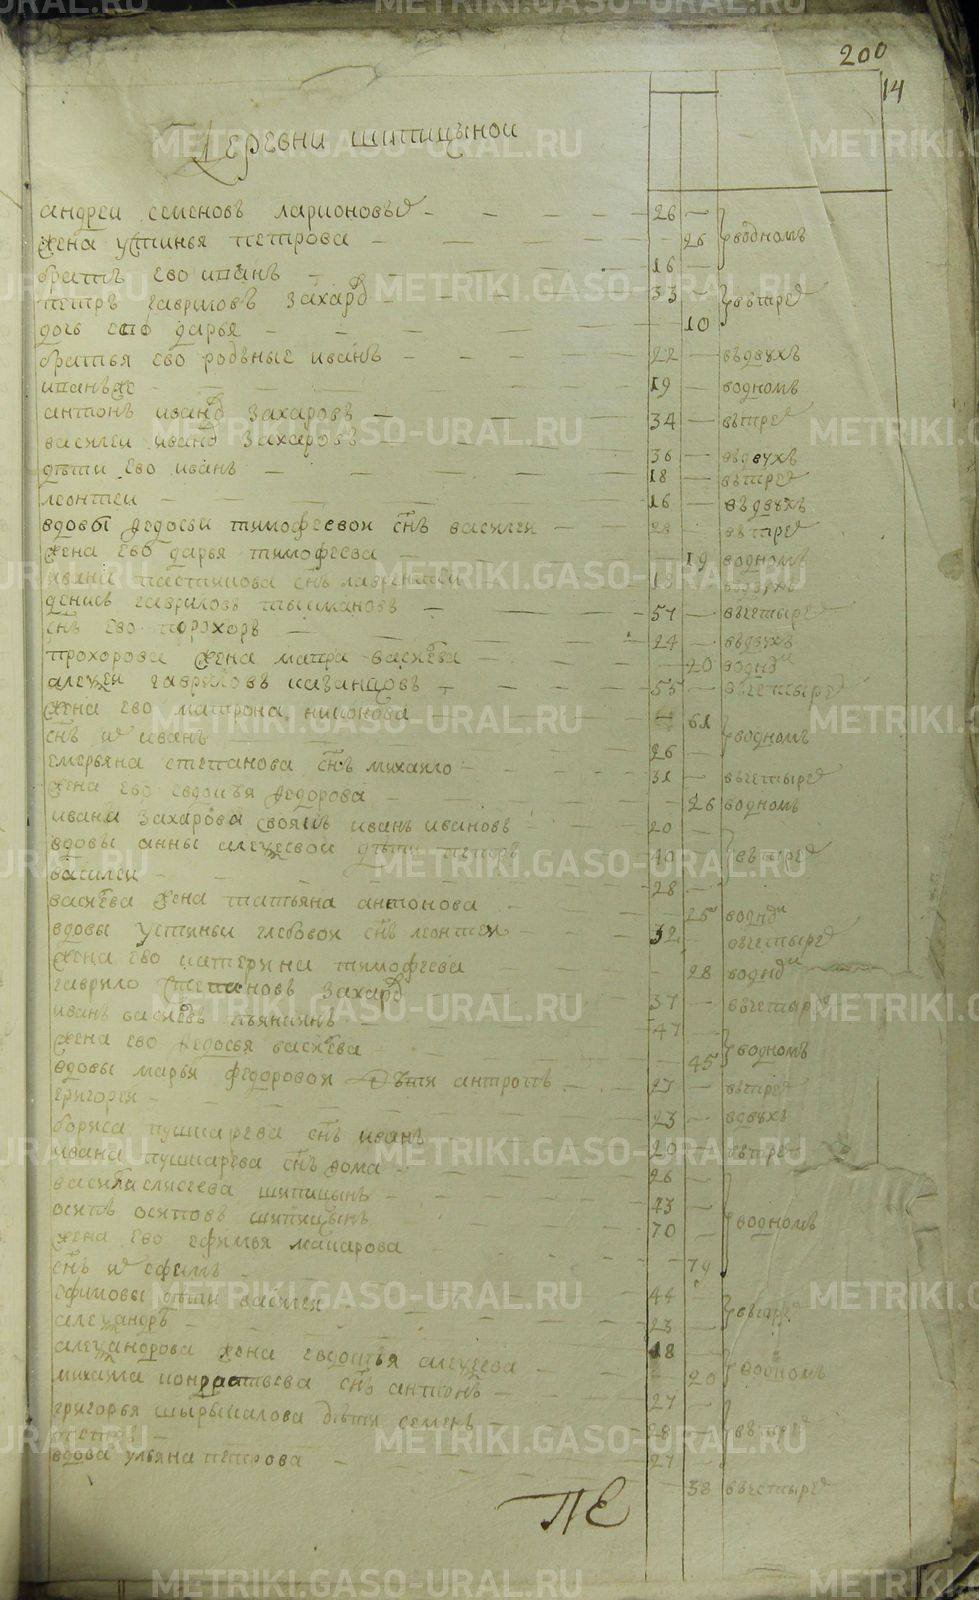 200
14
Деревни шипицыной
андреи семеновъ ларионовыд 26 водномъ
жена устинья петрова 26
братъ ево иванъ 16
петръ гавриловъ захард 33 втьтред
дочь ево дарья 10
братья ево родъные иванъ 22 въдвухъ
иванъже 19 водномъ
антонъ иванд захаровъ 34 вътред
василеи иванд захаровъ 36 въдвухъ
дѣти ево иванъ 18 вътред
леонтеи 16 въдвухъ
вдовы федосьи тимофеевои снъ василеи 28 вътред
жена ево дарья тимофеева 19 водномъ
ивана снъ лаврентеи 18
денисъ гавриловъ 57 вчетыред
снъ ево порохоръ 24 въдвухъ
прохорова жена мавра васильева 20 водно
алеѯеи гавриловъ казанцовъ 55 вчетыред
жена ево матрона никонова 61 водномъ
снъ их иванъ 26
емельяна степанова снъ михаило 31 вчетыред
жена ево евдокья федорова 26 водномъ
ивана захарова своякъ иванъ ивановъ 20
вдовы анны алеѯеевои дѣти петръ 40 вътред
василеи 28
васильева жена татьяна антонова 25 водно
вдовы устиньи глебовои снъ леонтеи 32 вчетыред
жена ево катерина тимофеева 28 водно
гаврило степановъ захард 37 вчетыред
иванъ васильевъ пьянкинъ 47 водномъ
жена ево федосья васильева 45
вдовы марьи федоровои дѣти антропъ 27 вътред
григореи 23 вдвухъ
бориса пушкарева снъ иванъ 20 вътред
ивана пушкарева снъ фома 26
василеи елисеева шипицынъ 43 водномъ
осипъ осиповъ шипицынъ 70
жена ево ефимья макарова 79
снъ их ефимъ 44 вътред
ефимовы дѣти василеи 23
алеѯандръ 18 водномъ
алеѯандрова жена евдокья алеѯеева 20
михаила кондратьева снъ антонъ 27 вътред
григорья шырыкалова дѣти семенъ 28
петръ 27
вдова ульяна петрова 38 вчетыред
ПЕ
METRIKI.GASO-URAL.RU